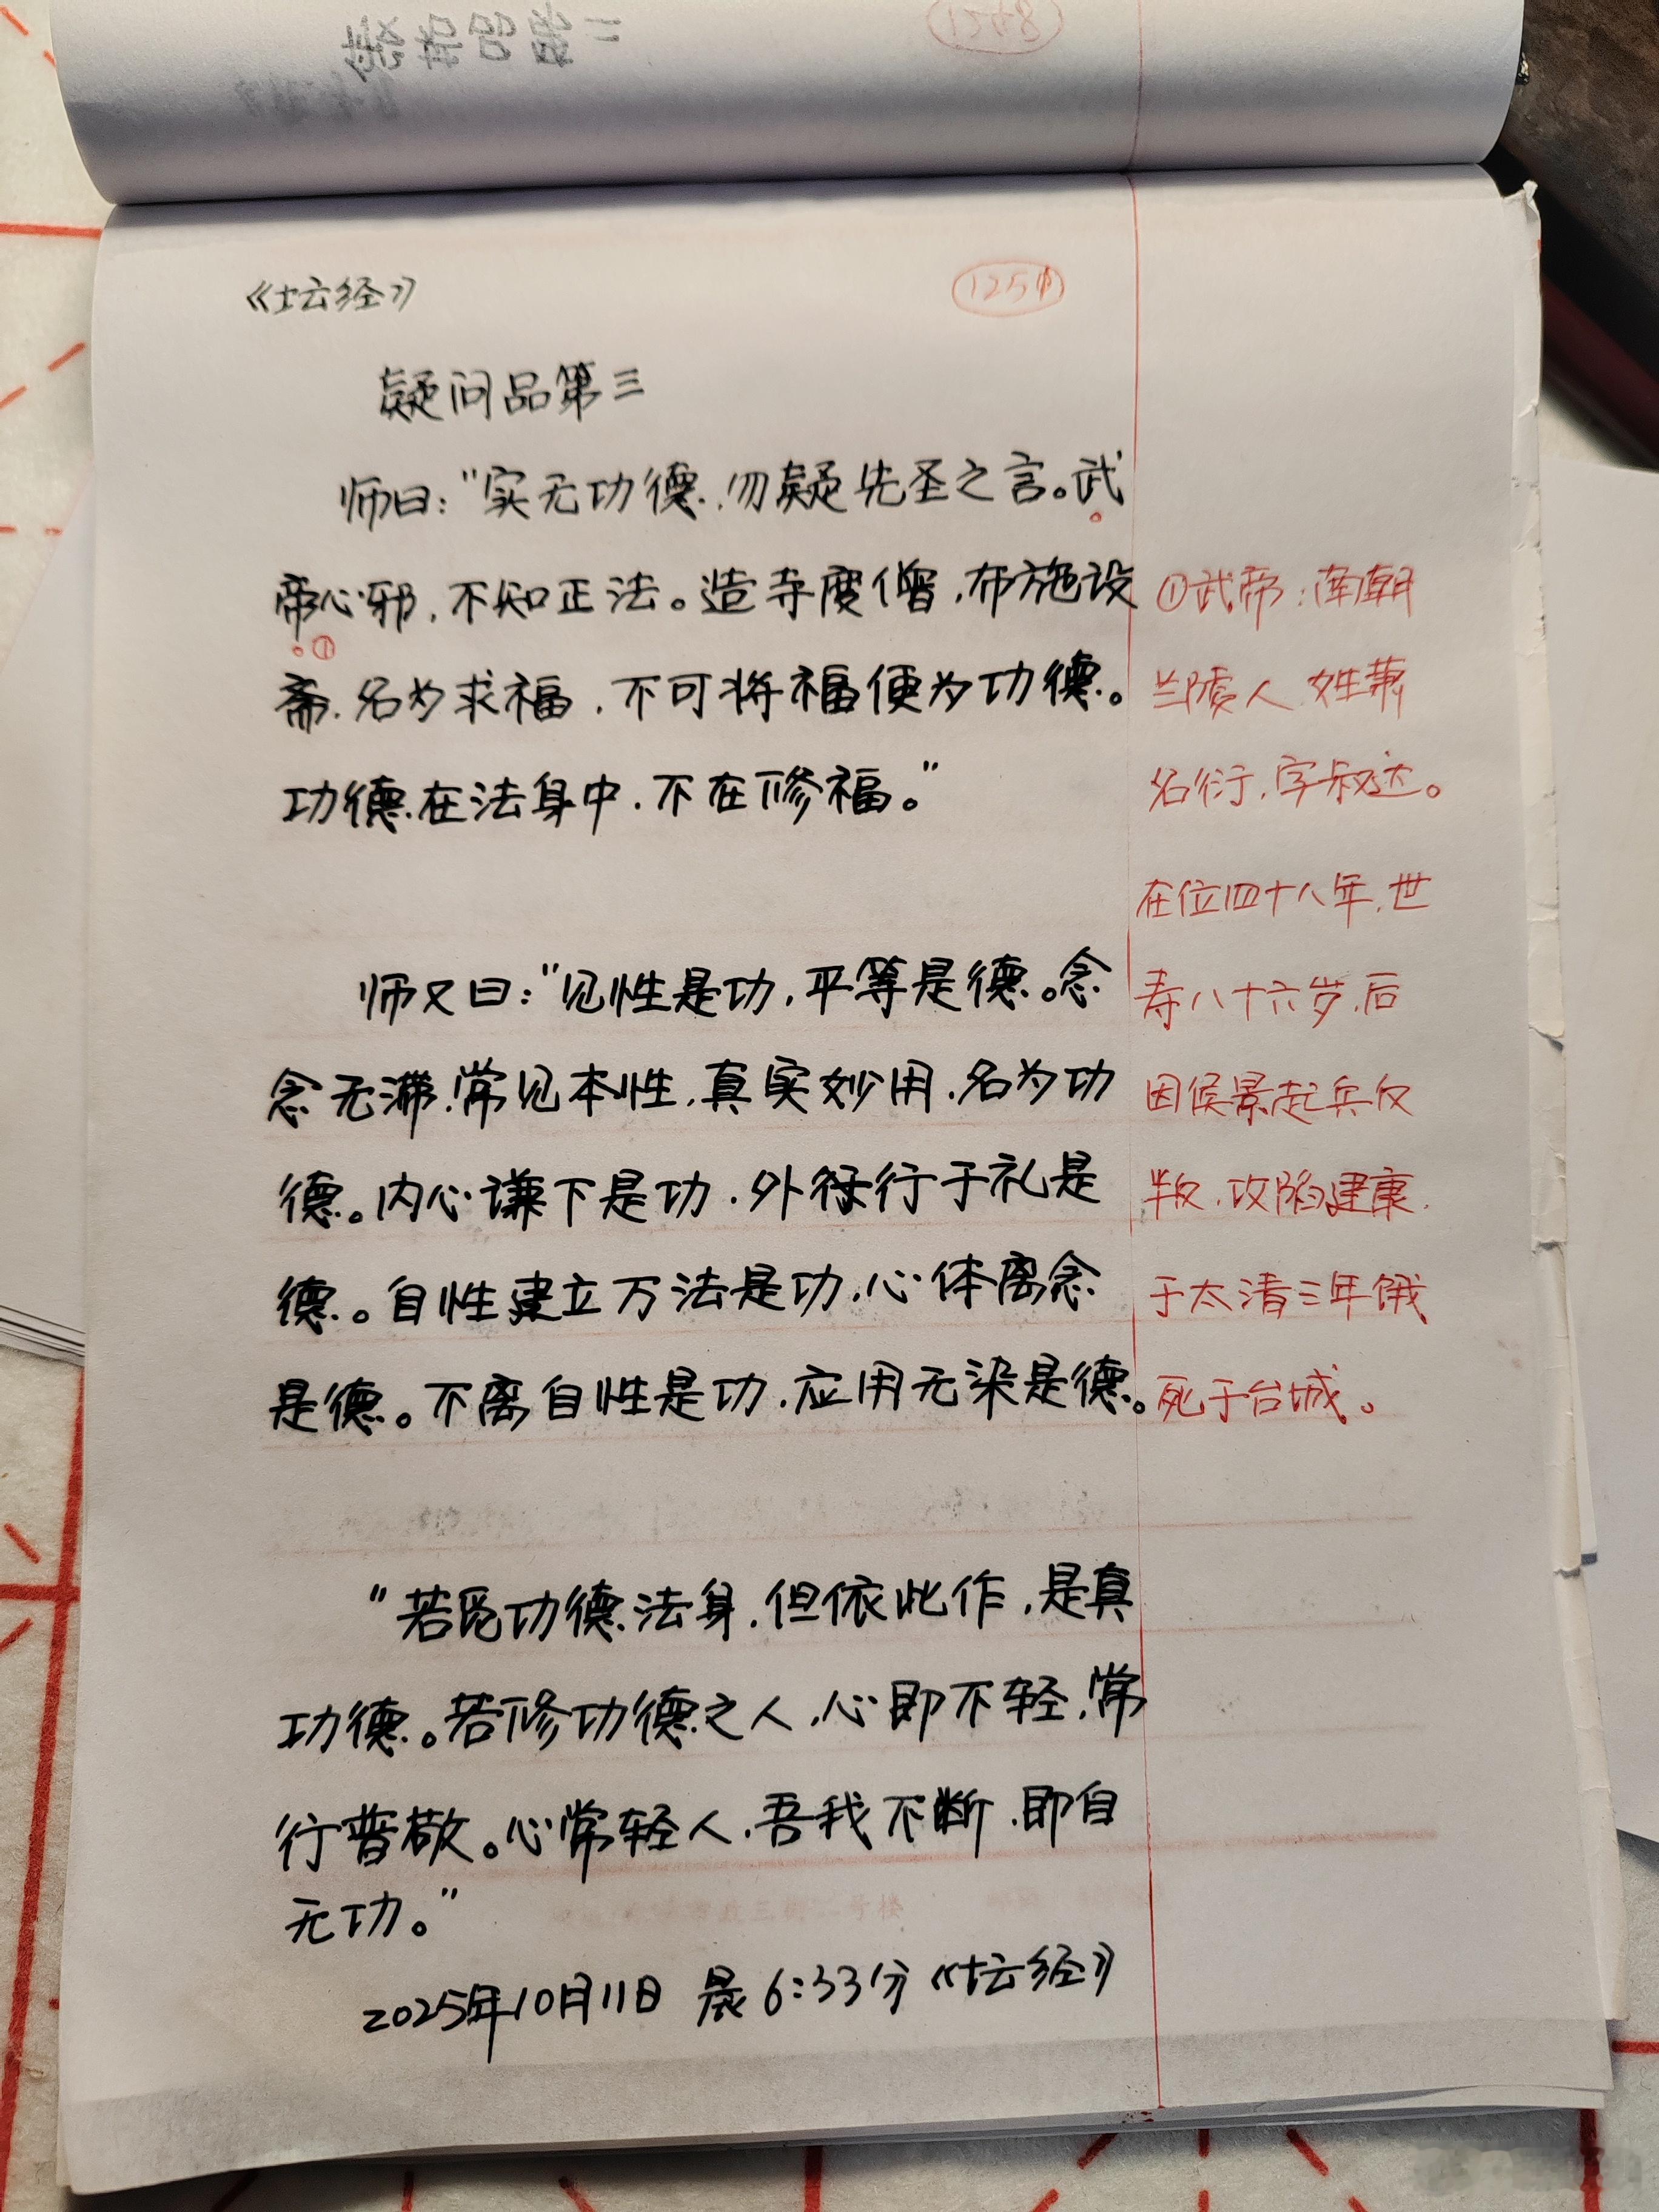 《坛经》
疑问品第三
师曰："实无功德，勿疑先圣之言。武
帝心邪，不知正法。造寺度僧，布施设
斋，名为求福，不可将福便为功德。
功德在法身中，不在修福。"
师又曰："见性是功，平等是德。念
念无滞，常见本性，真实妙用，名为功
德。内心谦下是功，外行于礼是
德。自性建立万法是功，心体离念
是德。不离自性是功，应用无染是德。
"若觅功德法身，但依此作，是真
功德。若修功德之人，心即不轻，常
行普敬。心常轻人，吾我不断，即自
无功。"
2025年10月11日 晨6:33分《坛经》
①
①武帝：南朝
人，姓萧
名衍，字叔达。
在位四十八年，世
寿八十六岁，后
因侯景起兵反
叛，攻陷建康，
于太清三年饿
死于台城。